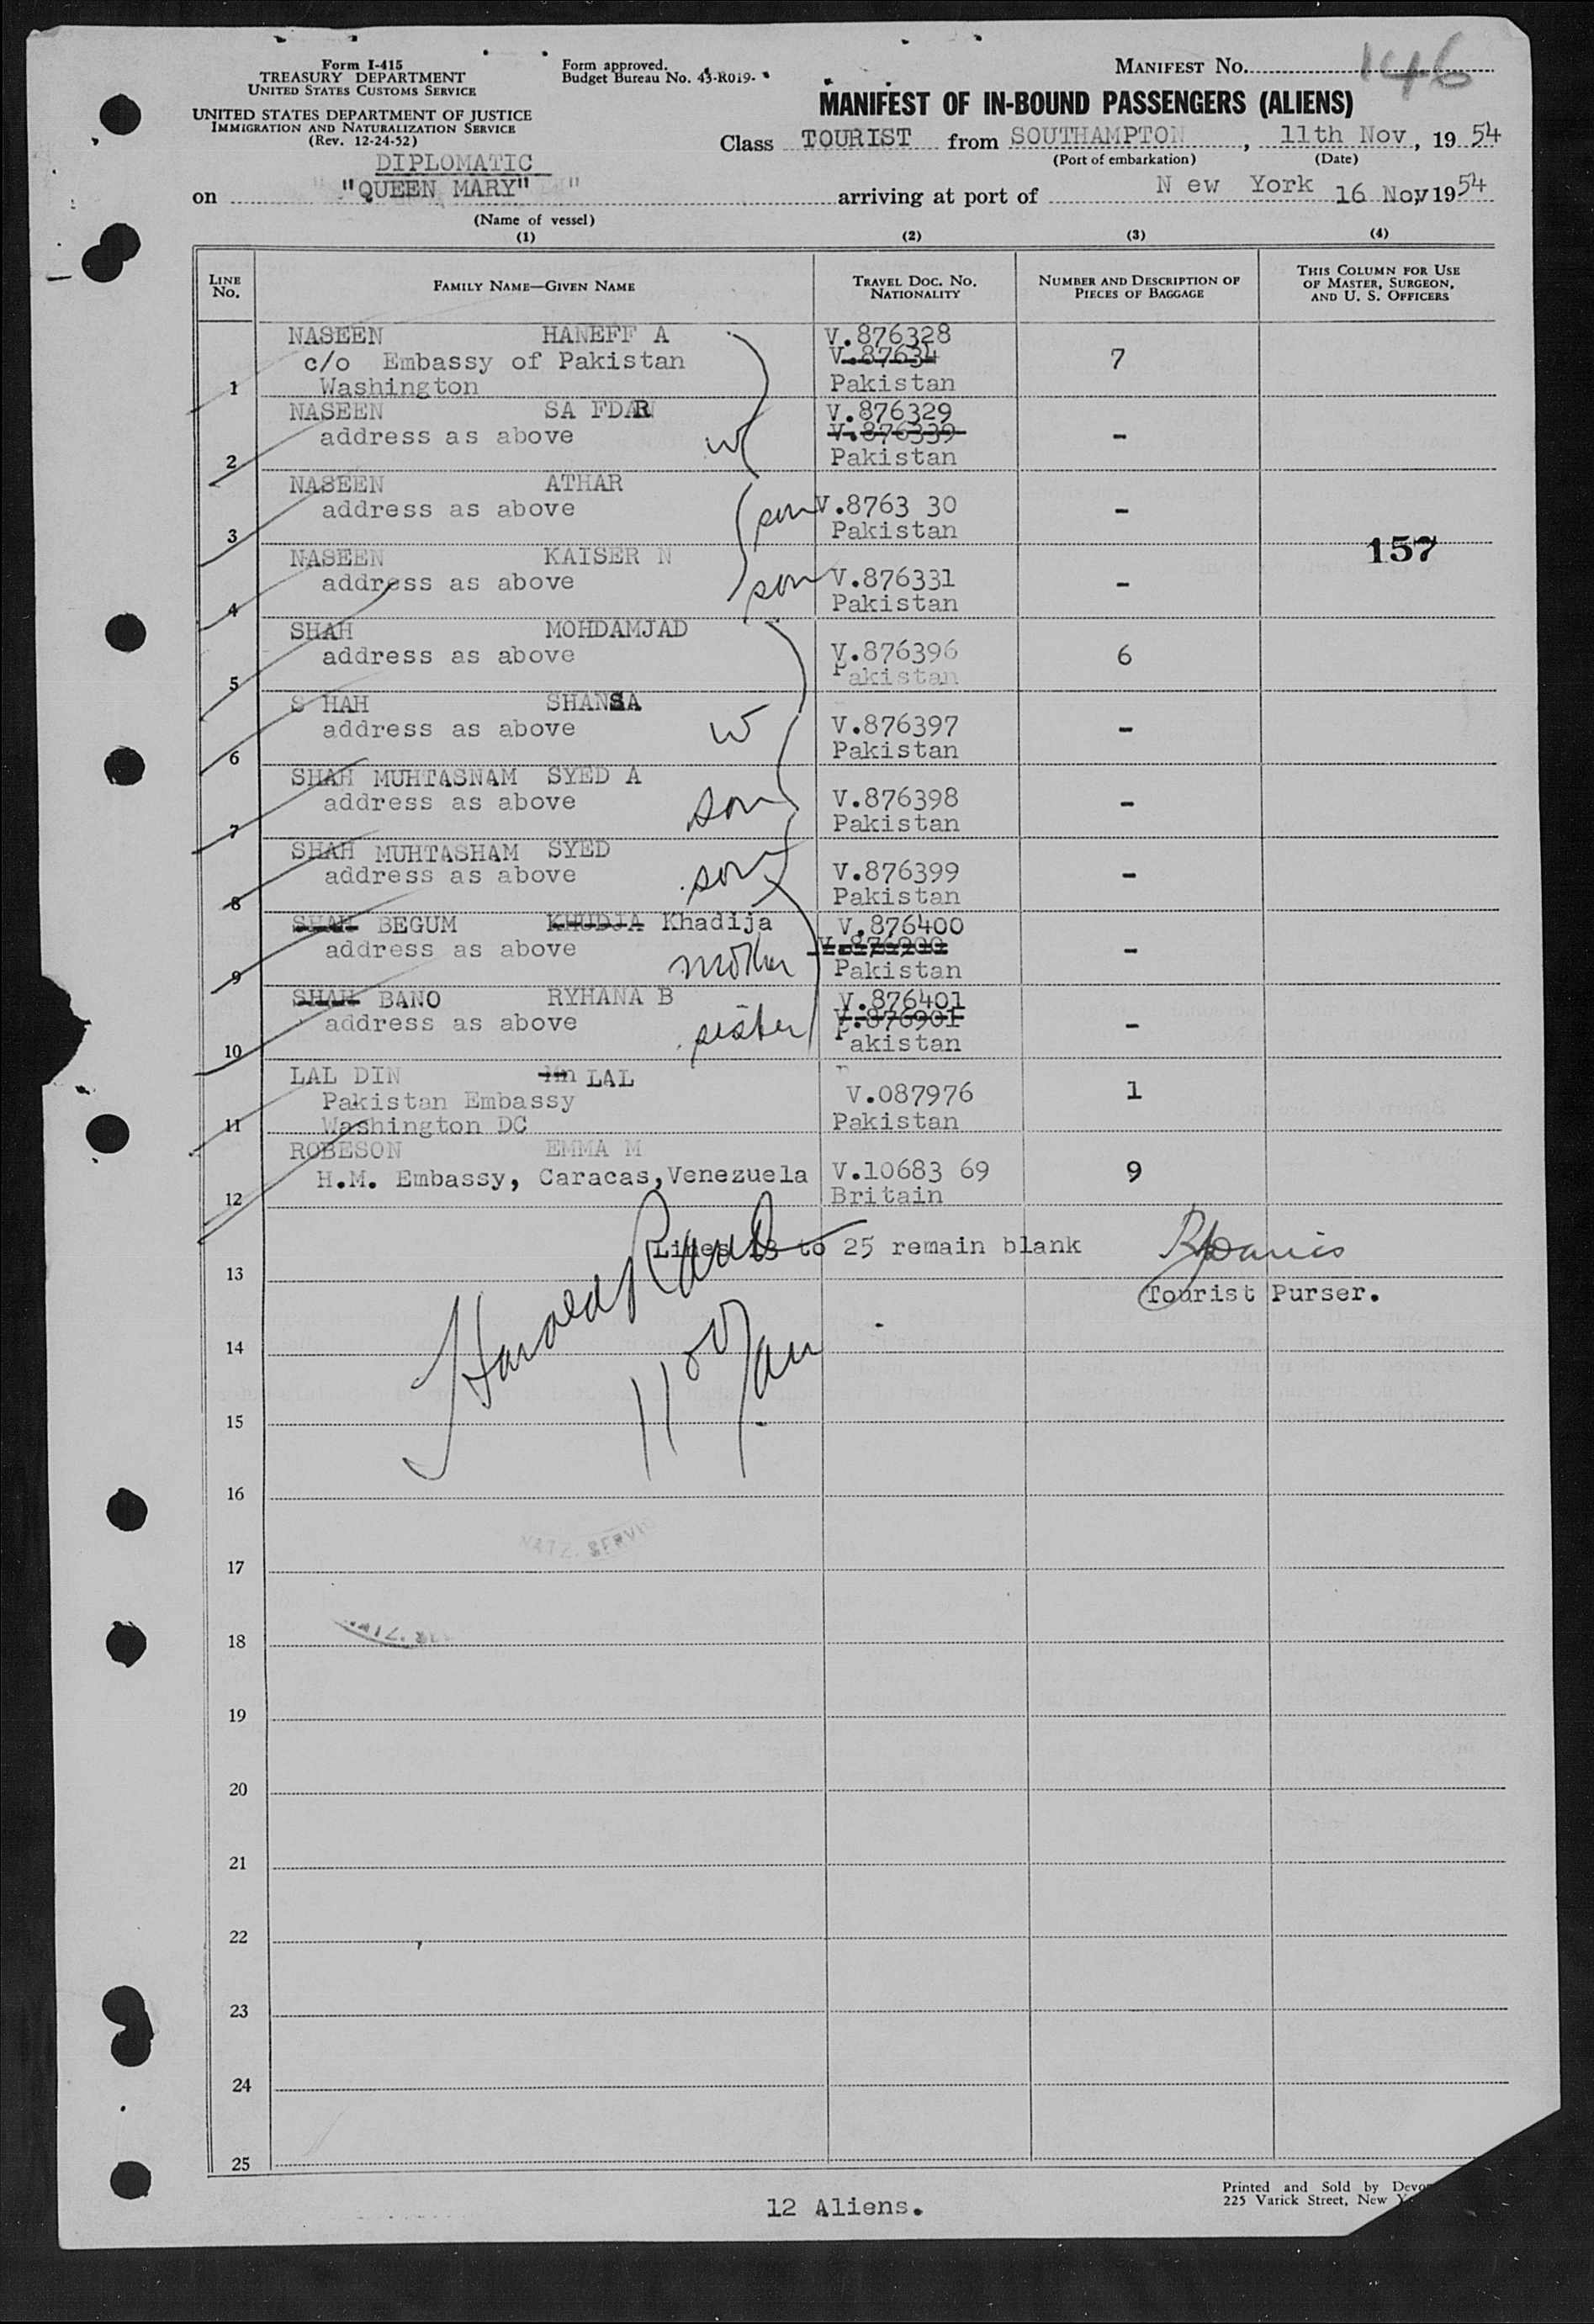 Form I-415
TREASURY DEPARTMENT
UNITED STATES CUSTOMS SERVICE
UNITED STATES DEPARTMENT OF JUSTICE
IMMIGRATION AND NATURALIZATION SERVICE
(Rev. 12-24-52)
Form approved.
Budget Bureau No. 43-R019-
MANIFEST NO. 146
MANIFEST OF IN-BOUND PASSENGERS (ALIENS)
Class TOURIST from SOUTHAMPTON, 11th Nov, 19 54
(Port of embarkation) (Date)
DIPLOMATIC
on "QUEEN MARY" arriving at port of N ew York 16 Nov, 1954
(Name of vessel)
(1) (2) (3) (4)
LINE NO. FAMILY NAME—GIVEN NAME TRAVEL DOC. NO. NATIONALITY NUMBER AND DESCRIPTION OF PIECES OF BAGGAGE THIS COLUMN FOR USE OF MASTER, SURGEON, AND U. S. OFFICERS
NASEEN HANEFF A V.876328
c/o Embassy of Pakistan V.87634 7
1 Washington Pakistan
NASEEN SA FDAR V.876329
address as above W V.876339 -
2 Pakistan
NASEEN ATHAR
address as above son V.8763 30 -
3 Pakistan
157
NASEEN KAISER N
address as above son V.876331 -
4 Pakistan
SHAH MOHDAMJAD
address as above V.876396 6
5 Pakistan
S HAH SHANSA
address as above W V.876397 -
6 Pakistan
SHAH MUHTASNAM SYED A
address as above son V.876398 -
7 Pakistan
SHAH MUHTASHAM SYED
address as above son V.876399 -
8 Pakistan
SHAH BEGUM KHUDJA Khadija V.876400
address as above mother V.876900 -
9 Pakistan
SHAH BANO RYHANA B V.876401
address as above sister V.876901 -
10 Pakistan
LAL DIN Mn LAL
Pakistan Embassy V.087976 1
11 Washington DC Pakistan
ROBESON EMMA M
H.M. Embassy, Caracas,Venezuela V.10683 69 9
12 Britain
Lines 13 to 25 remain blank
13
Tourist Purser.
Harold
14
15
16
NATZ. SERVI
17
18
19
20
21
22
23
24
25
12 Aliens.
Printed and Sold by Devon
225 Varick Street, New Y